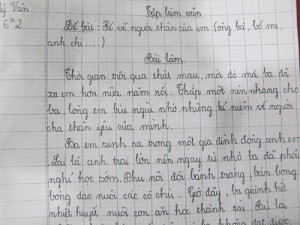 Vân
6 2
Tập làm văn
Đề bài: Kể về người thân của em (ông bà, bố mẹ,
anh chị....)
Bài làm
Thời gian trôi qua thật mau, mới đó mà ba đã
xa em hơn nửa năm rồi. Thắp một nén nhang cho
ba, lòng em bùi ngùi nhớ những kỉ niệm về người
cha thân yêu của mình.
Ba em sinh ra trong một gia đình đông anh em
Lại là anh trai lớn nên ngay từ nhỏ ba đã phải
nghỉ học sớm. Phụ nội đổi bánh tráng, bán bong
bóng dạo nuôi các cô chú. Giờ đây, ba giành hết
nhiệt huyết nuôi con ăn học thành tài.
không đạt được